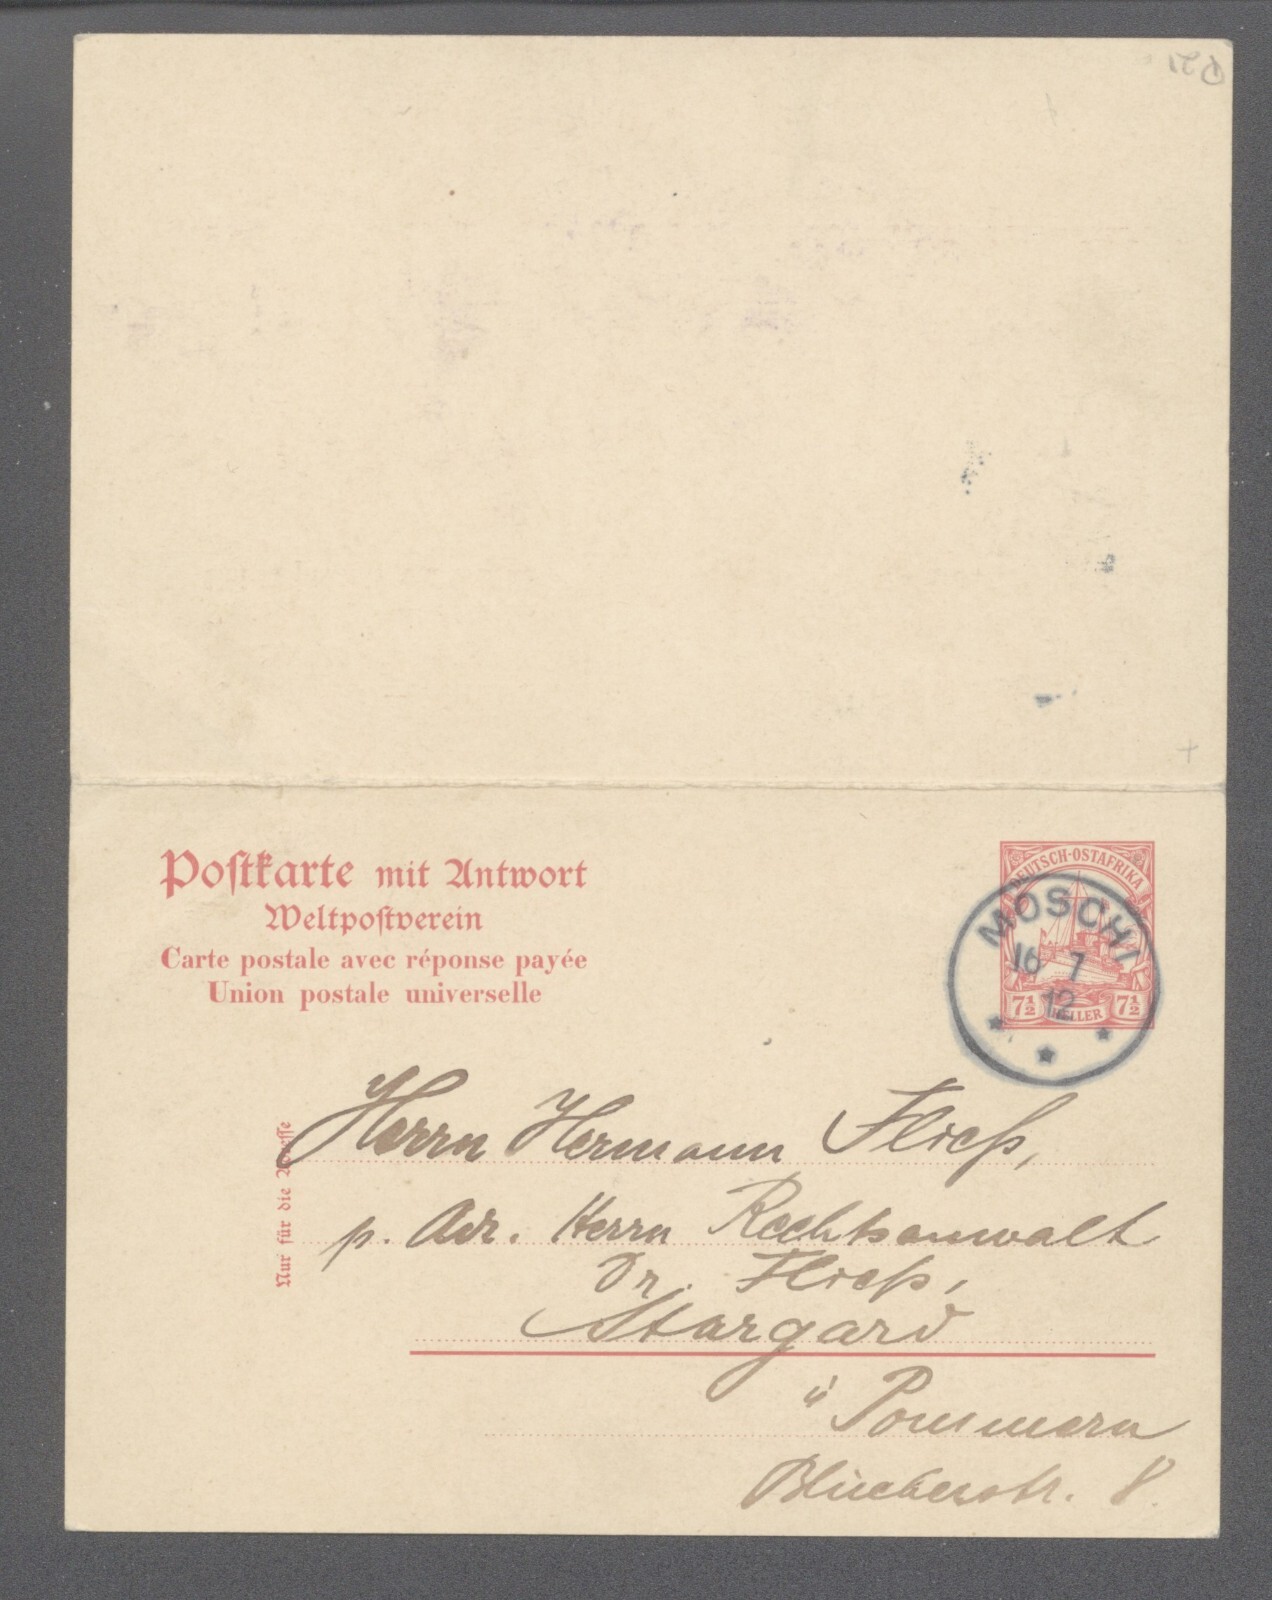 Postkarte mit Antwort
Weltpostverein
Carte postale avec réponse payée
Union postale universelle
DEUTSCH-OSTAFRIKA
7½ HELLER 7½
MOSCHI
16 7
12
Nur für die Adresse
Herrn Hermann Fließ,
p. Adr. Herrn Rechtsanwalt
Dr. Fließ,
Stargard
i/ Pommern
Blücherstr. 8.